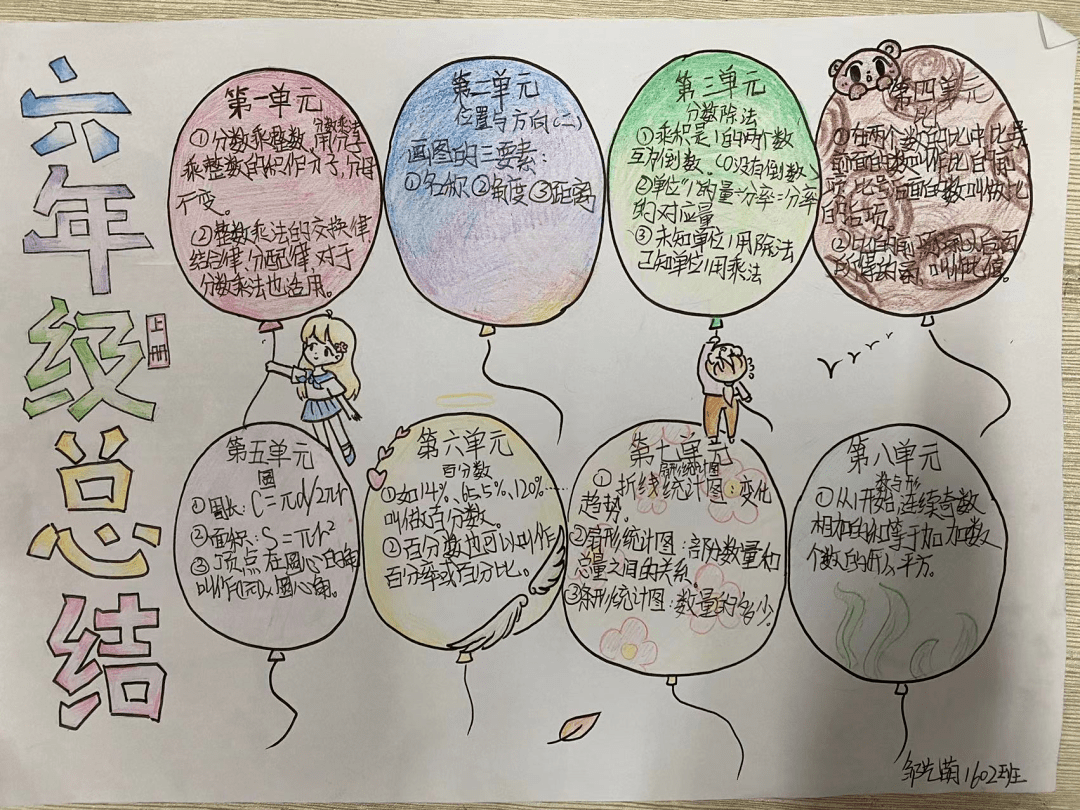 六年级总结
上册
第一单元
分数乘法
①分数乘整数,用分子
乘整数的积作分子,分母
不变。
②整数乘法的交换律,
结合律,分配律,对于
分数乘法也适用。
第二单元
位置与方向(二)
画图的三要素:
①名称②角度③距离
第三单元
分数除法
①乘积是1的两个数
互为倒数。(0没有倒数)
②单位"1"的量=分率=分率
的对应量
③未知单位1用除法
已知单位1用乘法
第四单元
比
①在两个数的比中,比号
前面的数叫作比的前
项,比号后面的数叫做比
的后项。
②比的前项除以后面
所得的商,叫作比值。
第五单元
圆
①周长:C=πd/2πr
②面积:S=πr²
③顶点在圆心的角
叫作圆心角。
第六单元
百分数
①如14%、65.5%、120%……
叫做百分数。
②百分数也可以叫作
百分率或百分比。
第七单元
扇形统计图
①折线统计图:变化
趋势。
②扇形统计图:部分数量和
总量之间的关系。
③条形统计图:数量的多少。
第八单元
数与形
①从1开始,连续奇数
相加的和等于加数
个数的平方。
1602班